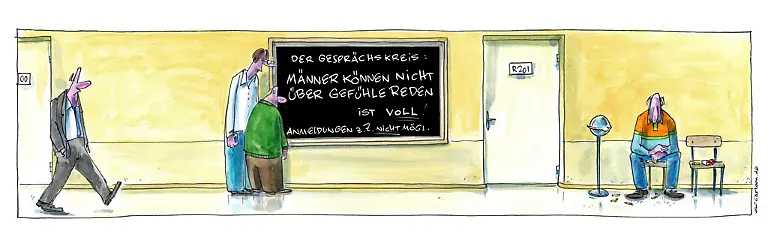 00
DER GESPRÄCHSKREIS:
MÄNNER KÖNNEN NICHT
ÜBER GEFÜHLE REDEN
IST VOLL!
ANMELDUNGEN z.Z. NICHT MÖGL.
R201